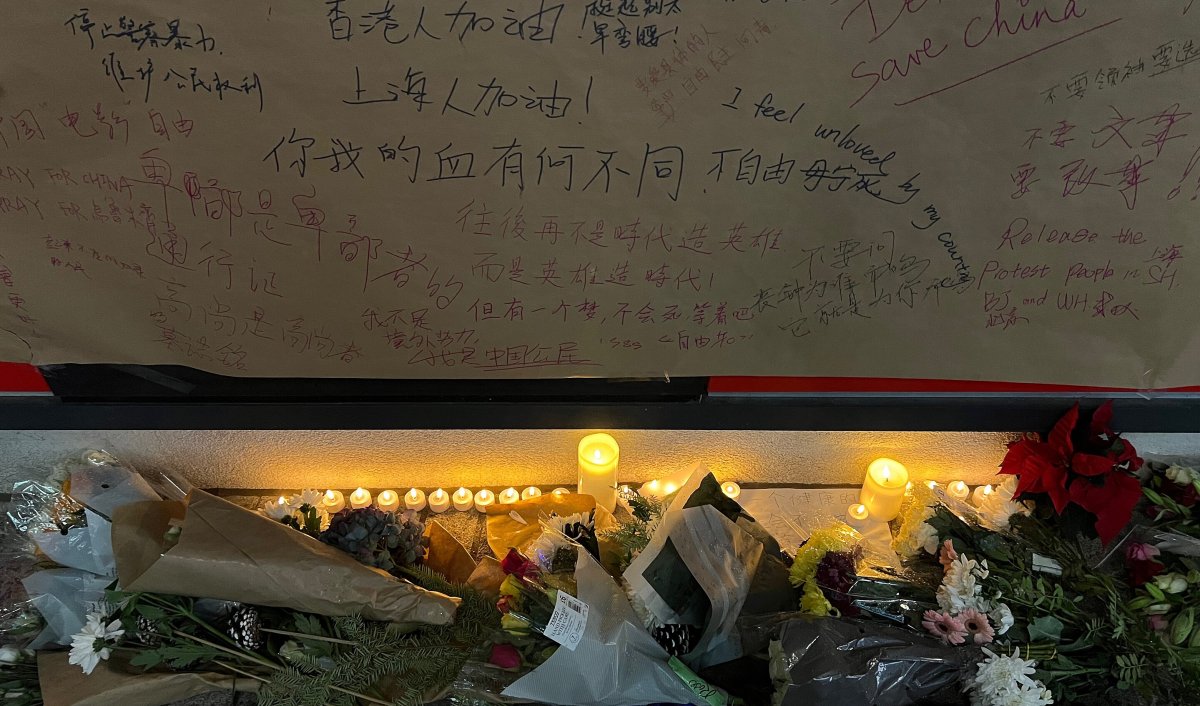 香港人加油!
挺起别太
早弯腰!
save China
停止警察暴力,
维护公民权利
上海人加油!
I feel unloved by my country
不要领袖要选
不要文革
要改革!!
电影 自由
你我的血有何不同
不自由毋宁死
PRAY FOR CHINA
PRAY FOR 乌鲁木齐
卑鄙是卑鄙者的
通行证
高尚是高尚者
墓志铭
往後再不是時代造英雄
而是英雄造時代!
但有一个梦,不会死,等着吧
我不是
境外势力
我是中国公民
不要问
丧钟为谁而鸣
它就是为你而鸣
Release the
Protest people in 上海 SH,
BJ and WH